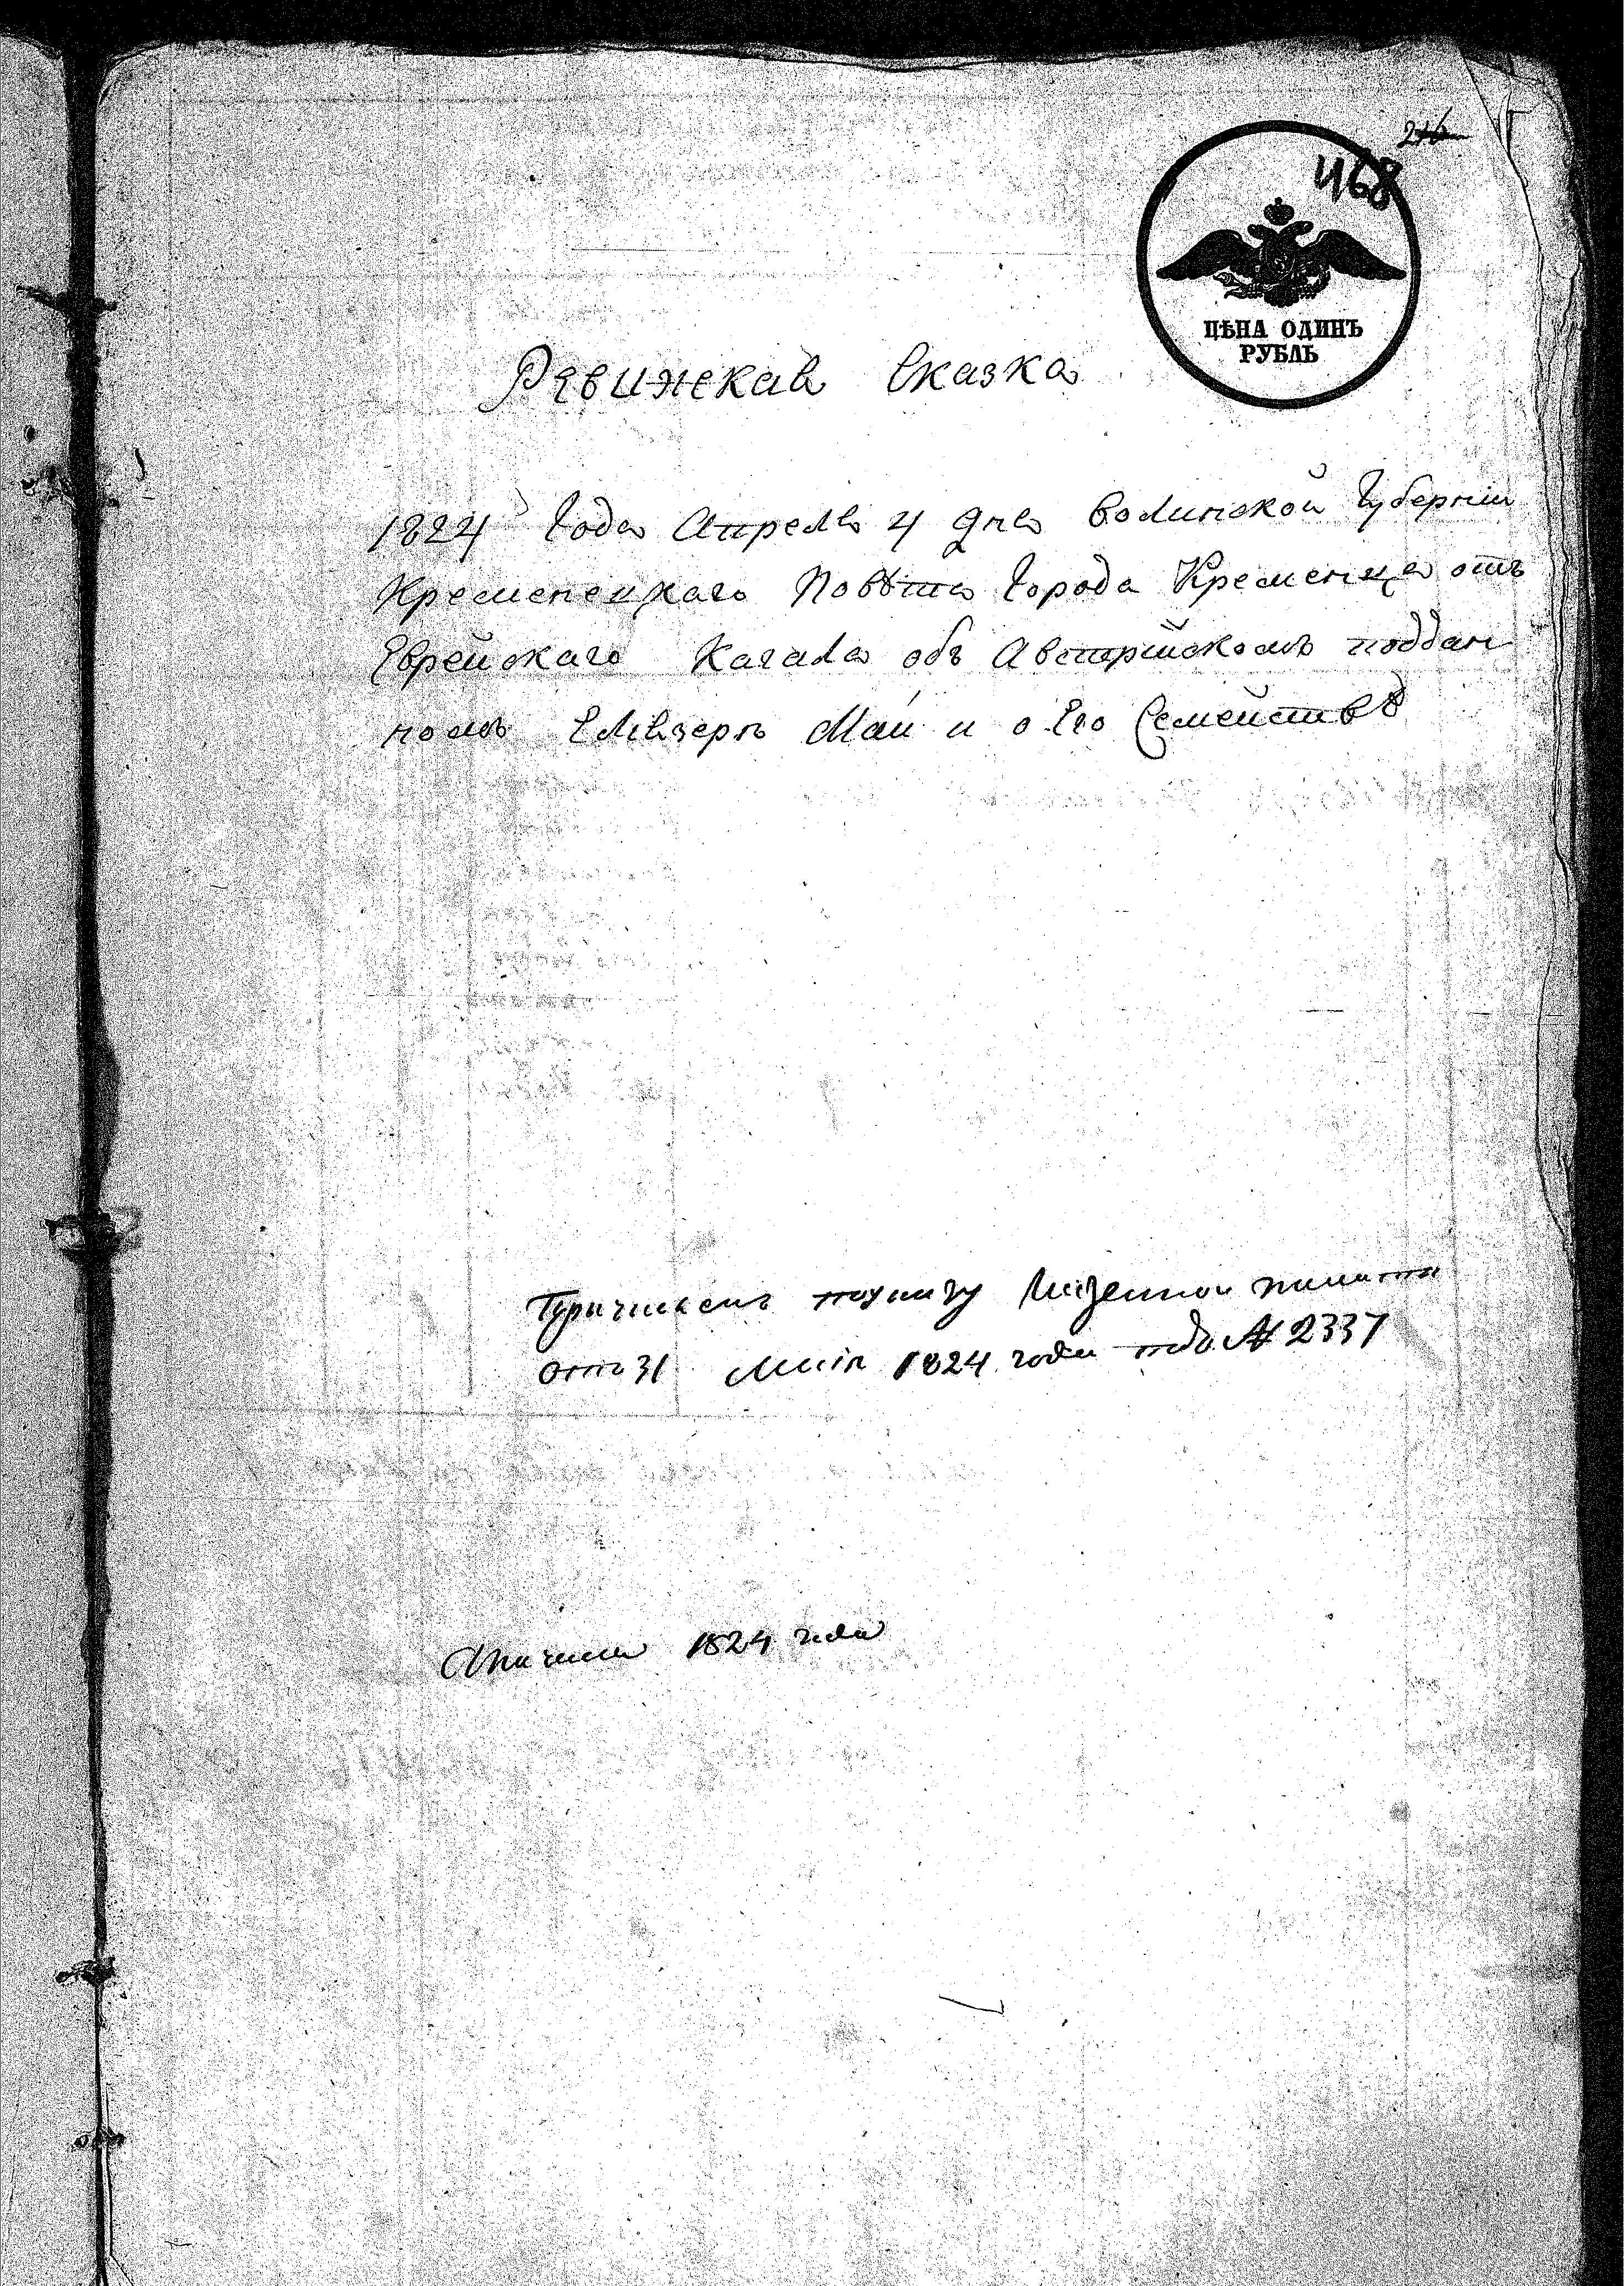 216
468
ЦѢНА ОДИНЪ
РУБЛЬ
Ревижская Сказка
1824 Года Апреля 4 дня Волинской Губерніи
Кременецкаго Повѣта Города Кременца отъ
Еврейскаго Кагала объ Австрійскомъ поддан
номъ Елѣзерѣ Май и о Его Семействѣ
При указѣ Казенной палаты
отъ 31 Маія 1824 года подъ № 2337
1824 года